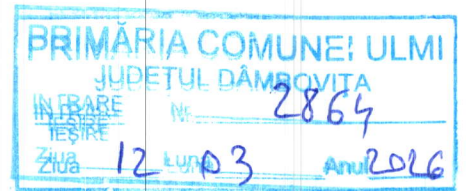 PRIMĂRIA COMUNEI ULMI
JUDEȚUL DÂMBOVIȚA
INTRARE
IEȘIRE Nr. 2864
Ziua 12 Luna 03 Anul 2026